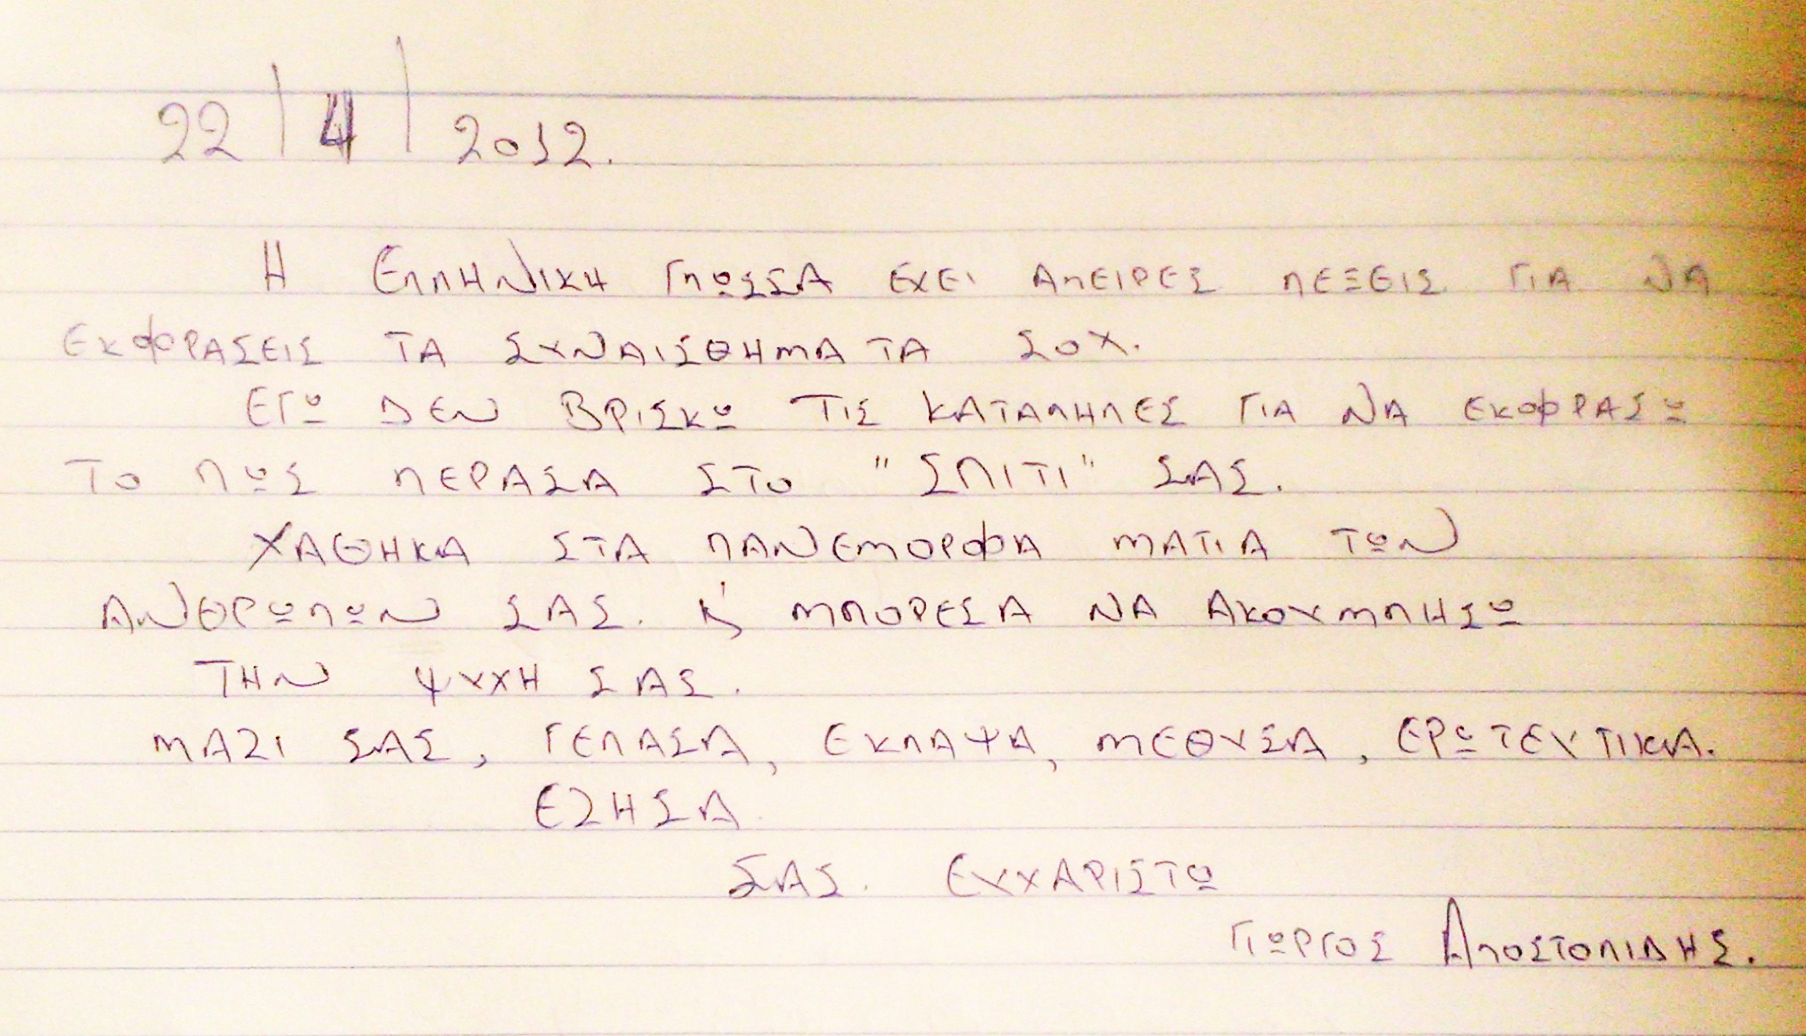 22/4/2012.
Η ΕΛΛΗΝΙΚΗ ΓΛΩΣΣΑ ΕΧΕΙ ΑΠΕΙΡΕΣ ΛΕΞΕΙΣ ΓΙΑ ΝΑ
ΕΚΦΡΑΣΕΙΣ ΤΑ ΣΥΝΑΙΣΘΗΜΑΤΑ ΣΟΥ.
ΕΓΩ ΔΕΝ ΒΡΙΣΚΩ ΤΙΣ ΚΑΤΑΛΗΛΕΣ ΓΙΑ ΝΑ ΕΚΦΡΑΣΩ
ΤΟ ΠΩΣ ΠΕΡΑΣΑ ΣΤΟ "ΣΠΙΤΙ" ΣΑΣ.
ΧΑΘΗΚΑ ΣΤΑ ΠΑΝΕΜΟΡΦΑ ΜΑΤΙΑ ΤΩΝ
ΑΝΘΡΩΠΩΝ ΣΑΣ. Κ' ΜΠΟΡΕΣΑ ΝΑ ΑΚΟΥΜΠΗΣΩ
ΤΗΝ ΨΥΧΗ ΣΑΣ.
ΜΑΖΙ ΣΑΣ, ΓΕΛΑΣΑ, ΕΚΛΑΨΑ, ΜΕΘΥΣΑ, ΕΡΩΤΕΥΤΙΚΑ.
ΕΖΗΣΑ.
ΣΑΣ. ΕΥΧΑΡΙΣΤΩ
ΓΙΩΡΓΟΣ ΑΠΟΣΤΟΛΙΔΗΣ.